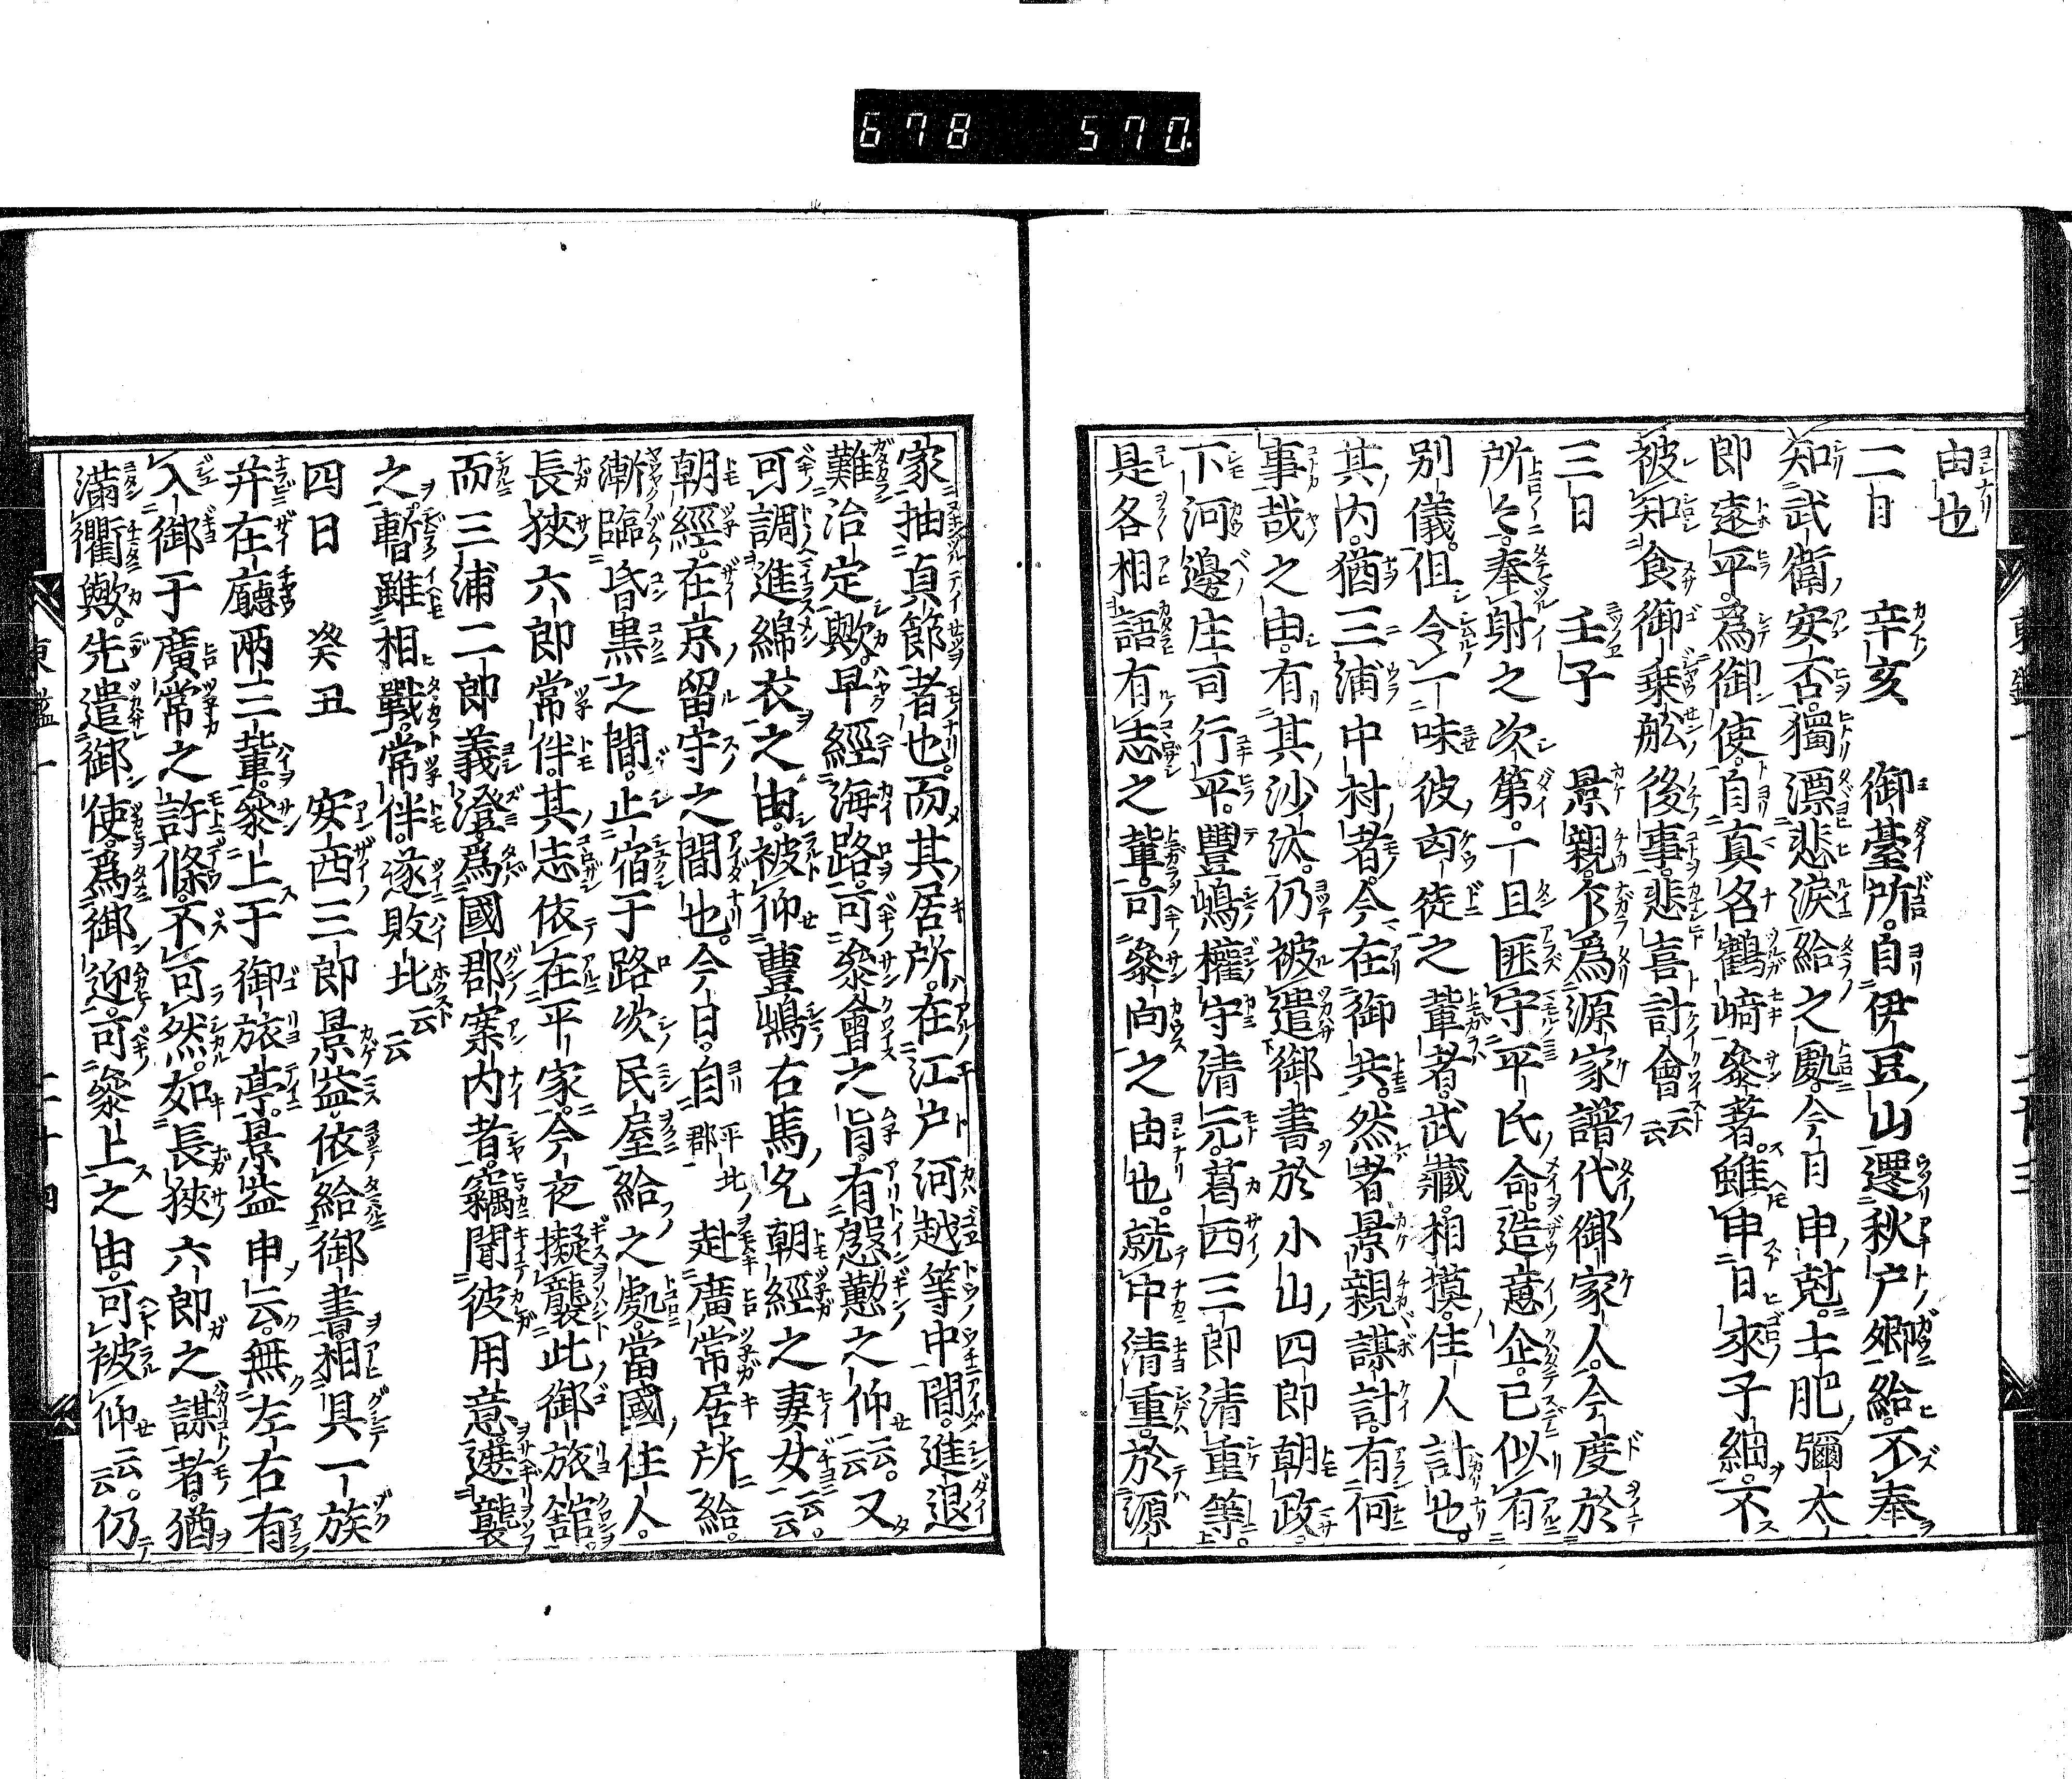 678 570.
由也
二日 辛亥 御臺所。自伊豆山遷秋戸郷給。不奉
知武衛安否。獨漂悲涙給之處。今日申尅。土肥彌太
郎遠平。爲御使。自真名鶴﨑參著。雖申日來子細。不
被知食御乗舩後事。悲喜計會云云
三日 壬子 景親。乍爲源家譜代御家人。今度於
所々。奉射之次第。一旦匪守平氏命。造意企。已似有
別儀。但令一味彼凶徒之輩者。武藏。相摸。住人計也。
其内。猶三浦中村者。今在御共。然者景親謀計。有何
事哉之由。有其沙汰。仍被遣御書於小山四郎朝政。
下河邊庄司行平。豐嶋權守清元。葛西三郎清重等。
是各相語有志之輩。可參向之由也。就中清重。於源
家抽貞節者也。而其居所。在江戸河越等中間。進退
難治定歟。早經海路。可參會之旨。有慇懃之仰云云。又
可調進綿衣之由。被仰豊嶋右馬允朝經之妻女云云。
朝經。在京留守之間也。今日。自平北郡赴廣常居所給。
漸臨昏黒之間。止宿于路次民屋給之處。當國住人。
長狹六郎常伴。其志依在平家。今夜擬襲此御旅舘。
而三浦二郎義澄。爲國郡案内者。竊聞彼用意。遮襲
之。暫雖相戰。常伴。遂敗北云云
四日 癸丑 安西三郎景益。依給御書。相具一族
并在廳兩三輩。參上于御旅亭。景益申云。無左右有
入御于廣常之許條。不可然。如長狹六郎之謀者。猶
滿衢歟。先遣御使。爲御迎。可參上之由。可被仰云云。仍